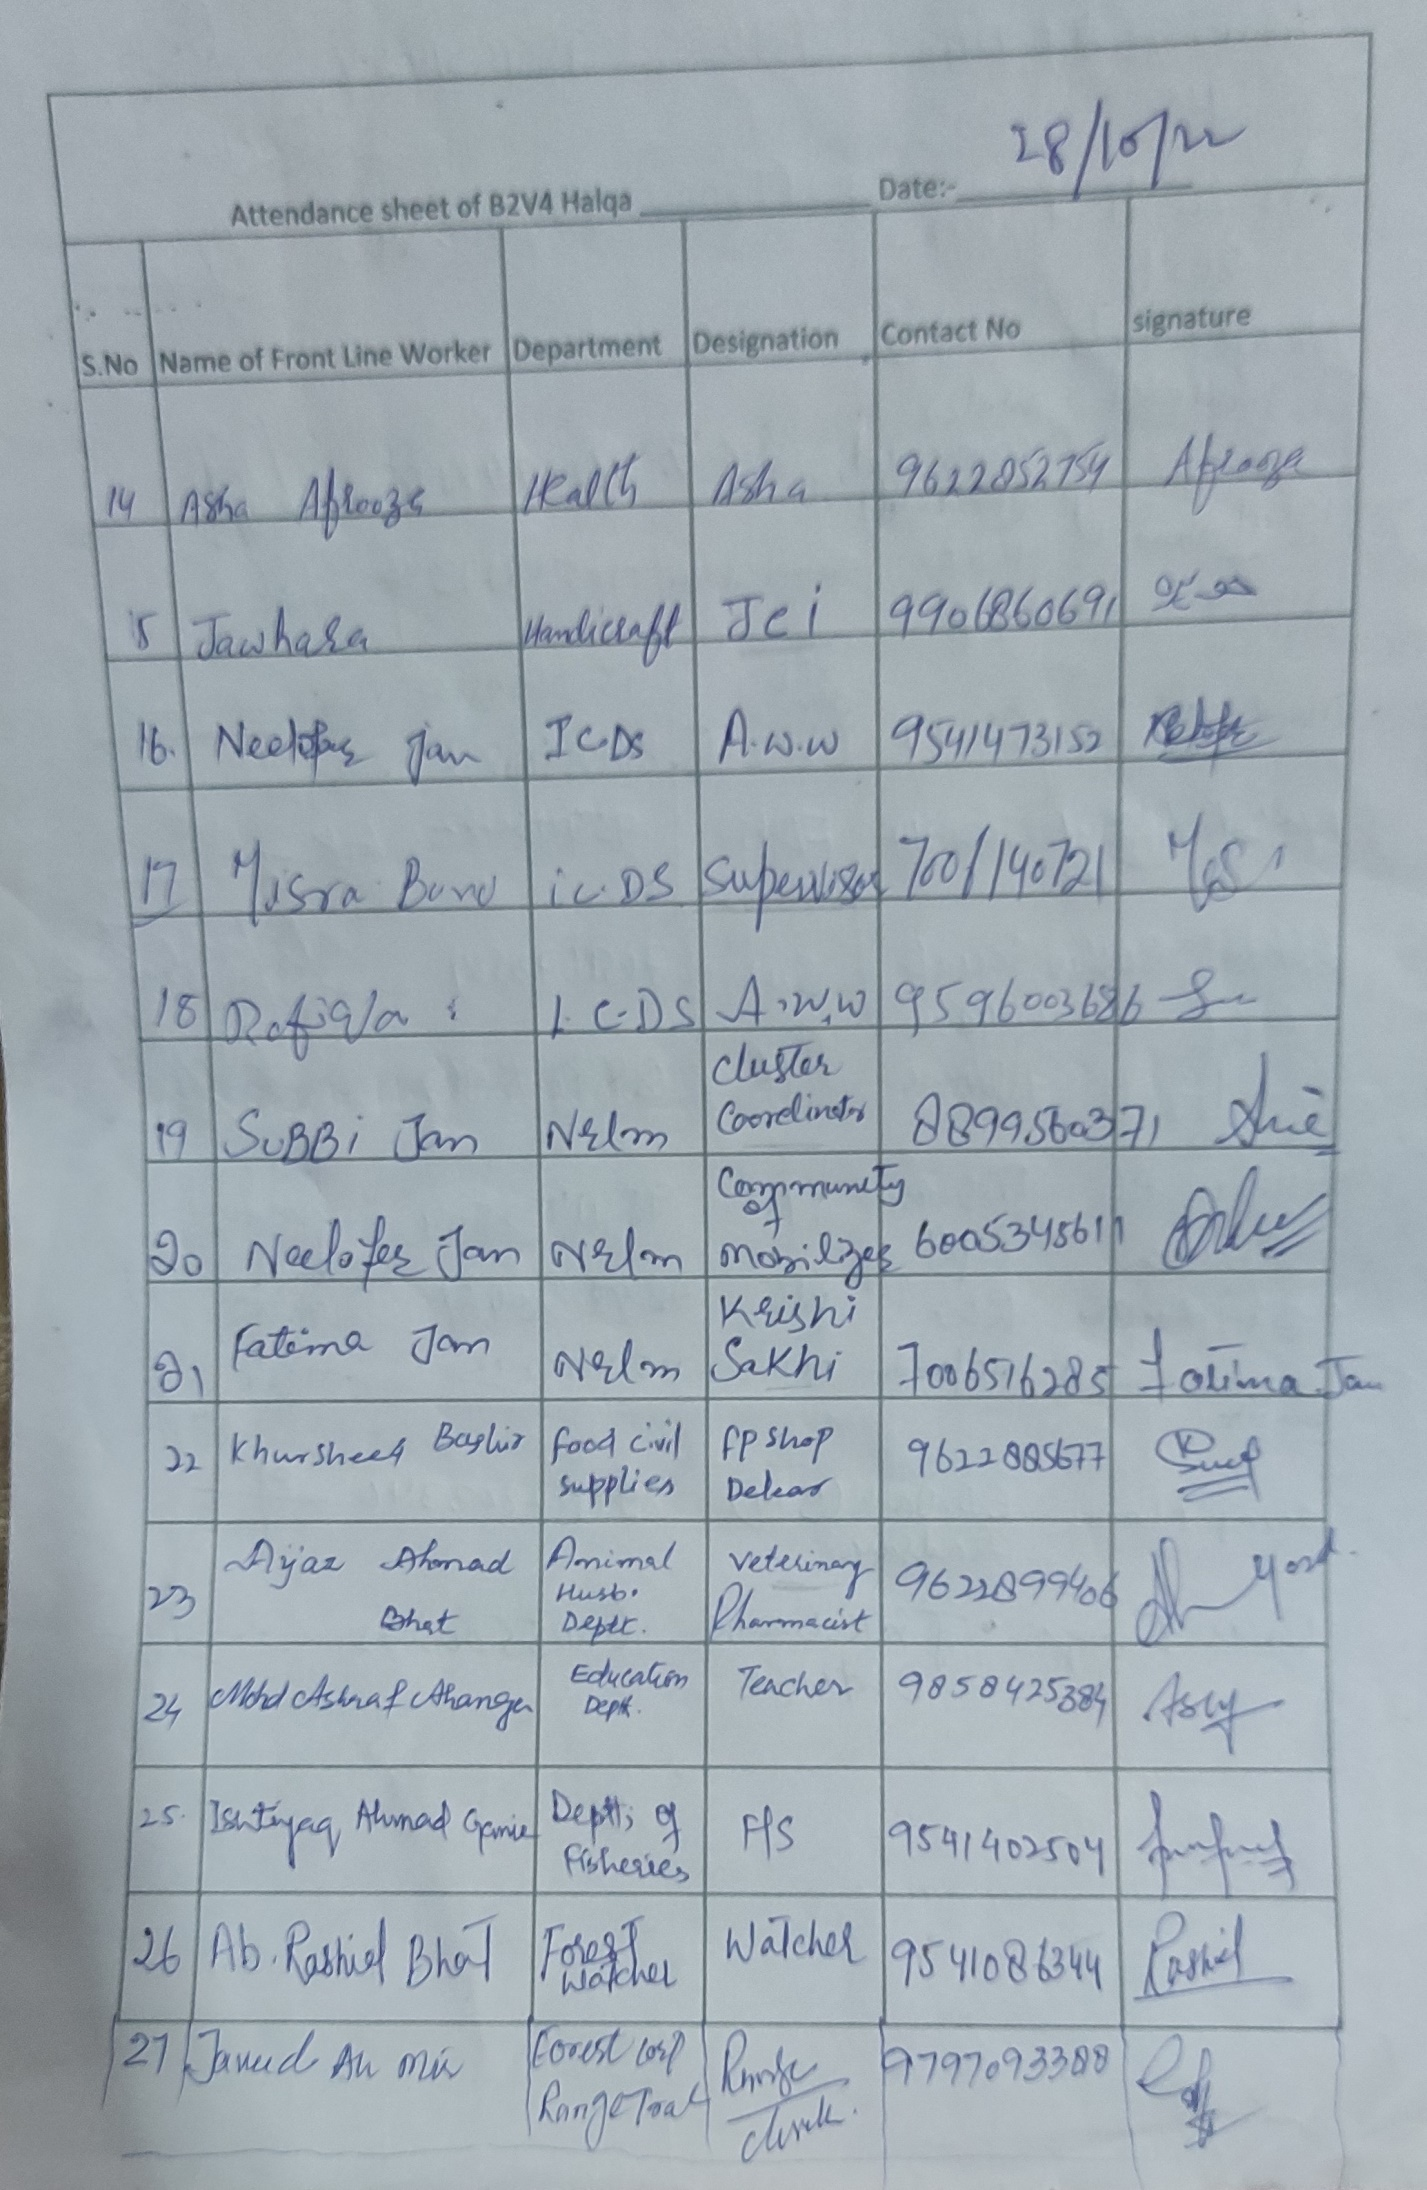 28/10/22
Attendance sheet of B2V4 Halqa Date:-
S.No Name of Front Line Worker Department Designation Contact No signature
14 Asha Afrooze Health Asha 9622852754 Afrooza
15 Jawhara Handicraft Jci 9906860691
16. Neelofar Jan ICDS A.W.W 9541473152
17 Misra Bano iCDS Supervisor 7001140721
18 Rafiqa I.C.DS A.W.W 9596003686
19 SuBBi Jan Nrlm Cluster Coordinator 8899560371
20 Neelofer Jan Nrlm Community of mobilizer 6005345611
21 Fatima Jan Nrlm Krishi Sakhi 7006516285 Fatima Jan
22 Khursheed Bashir food civil supplies fp shop Delear 9622885677
23 Aijaz Ahmad Bhat Animal Husb. Deptt. Veterinary Pharmacist 9622899406
24 Mohd Ashraf Ahanger Education Deptt. Teacher 9858425384
25. Ishtiyaq Ahmad Ganie Deptt; of Fisheries F/S 9541402504
26 Ab. Rashid Bhat Forest Watcher Watcher 9541086344 Rashid
27 Javid Ah mir Forest Corp Range Tral Range Clerk. 9797093388